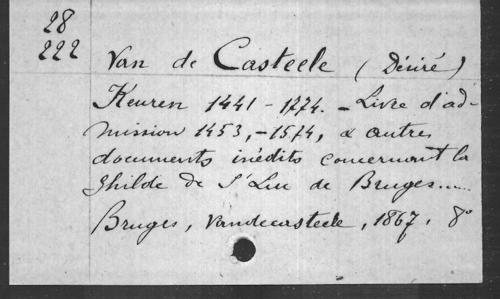 28
222
Van de Casteele (Désiré)
Keuren 1441-1774. - Livre d'ad-
mission 1453,-1574, & autres
documents inédits concernant la
Ghilde de S' Luc de Bruges.....
Bruges, Vandecasteele, 1867. 8°